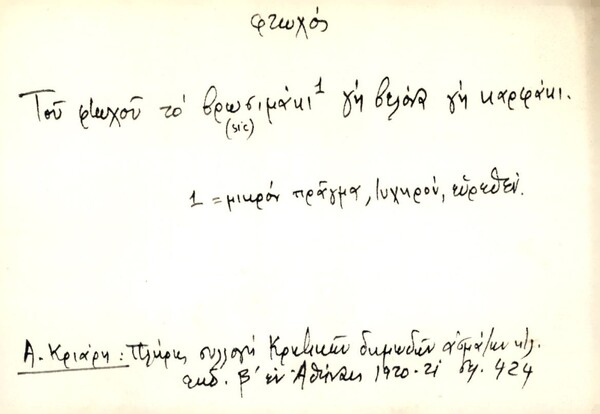 φτωχός
Τοῦ φτωχοῦ τό βρωσιμάκι¹ γή βελόνα γή καρφάκι.
(sic)
1 = μικρόν πρᾶγμα, τυχηρόν, εὑρεθέν.
Α. Κριάρη: Πλήρης συλλογή Κρητικῶν δημωδῶν ἀσμάτων κτλ.
ἐκδ. β' ἐν Ἀθήναις 1920-21 σελ. 424